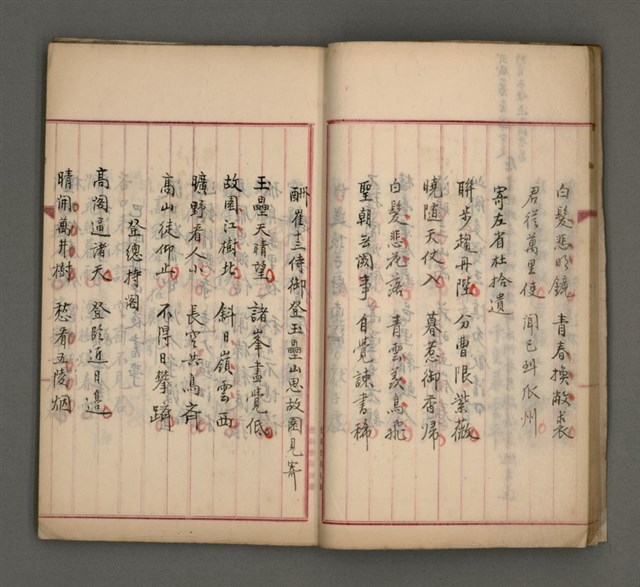 白髮悲明鏡 青春換敝裘
君從萬里使 聞已到瓜州
寄左省杜拾遺
聯步趨丹陛 分曹限紫薇
曉隨天仗入 暮惹御香歸
白髮悲花落 青雲羨鳥飛
聖朝無闕事 自覺諫書稀
酬崔三侍御登玉壘山思故園見寄
玉壘天晴望 諸峯盡覺低
故園江樹北 斜日嶺雲西
曠野看人小 長空共鳥齊
高山徒仰止 不得日攀躋
登總持閣
高閣逼諸天 登臨近日邊
晴開萬井樹 愁看五陵烟